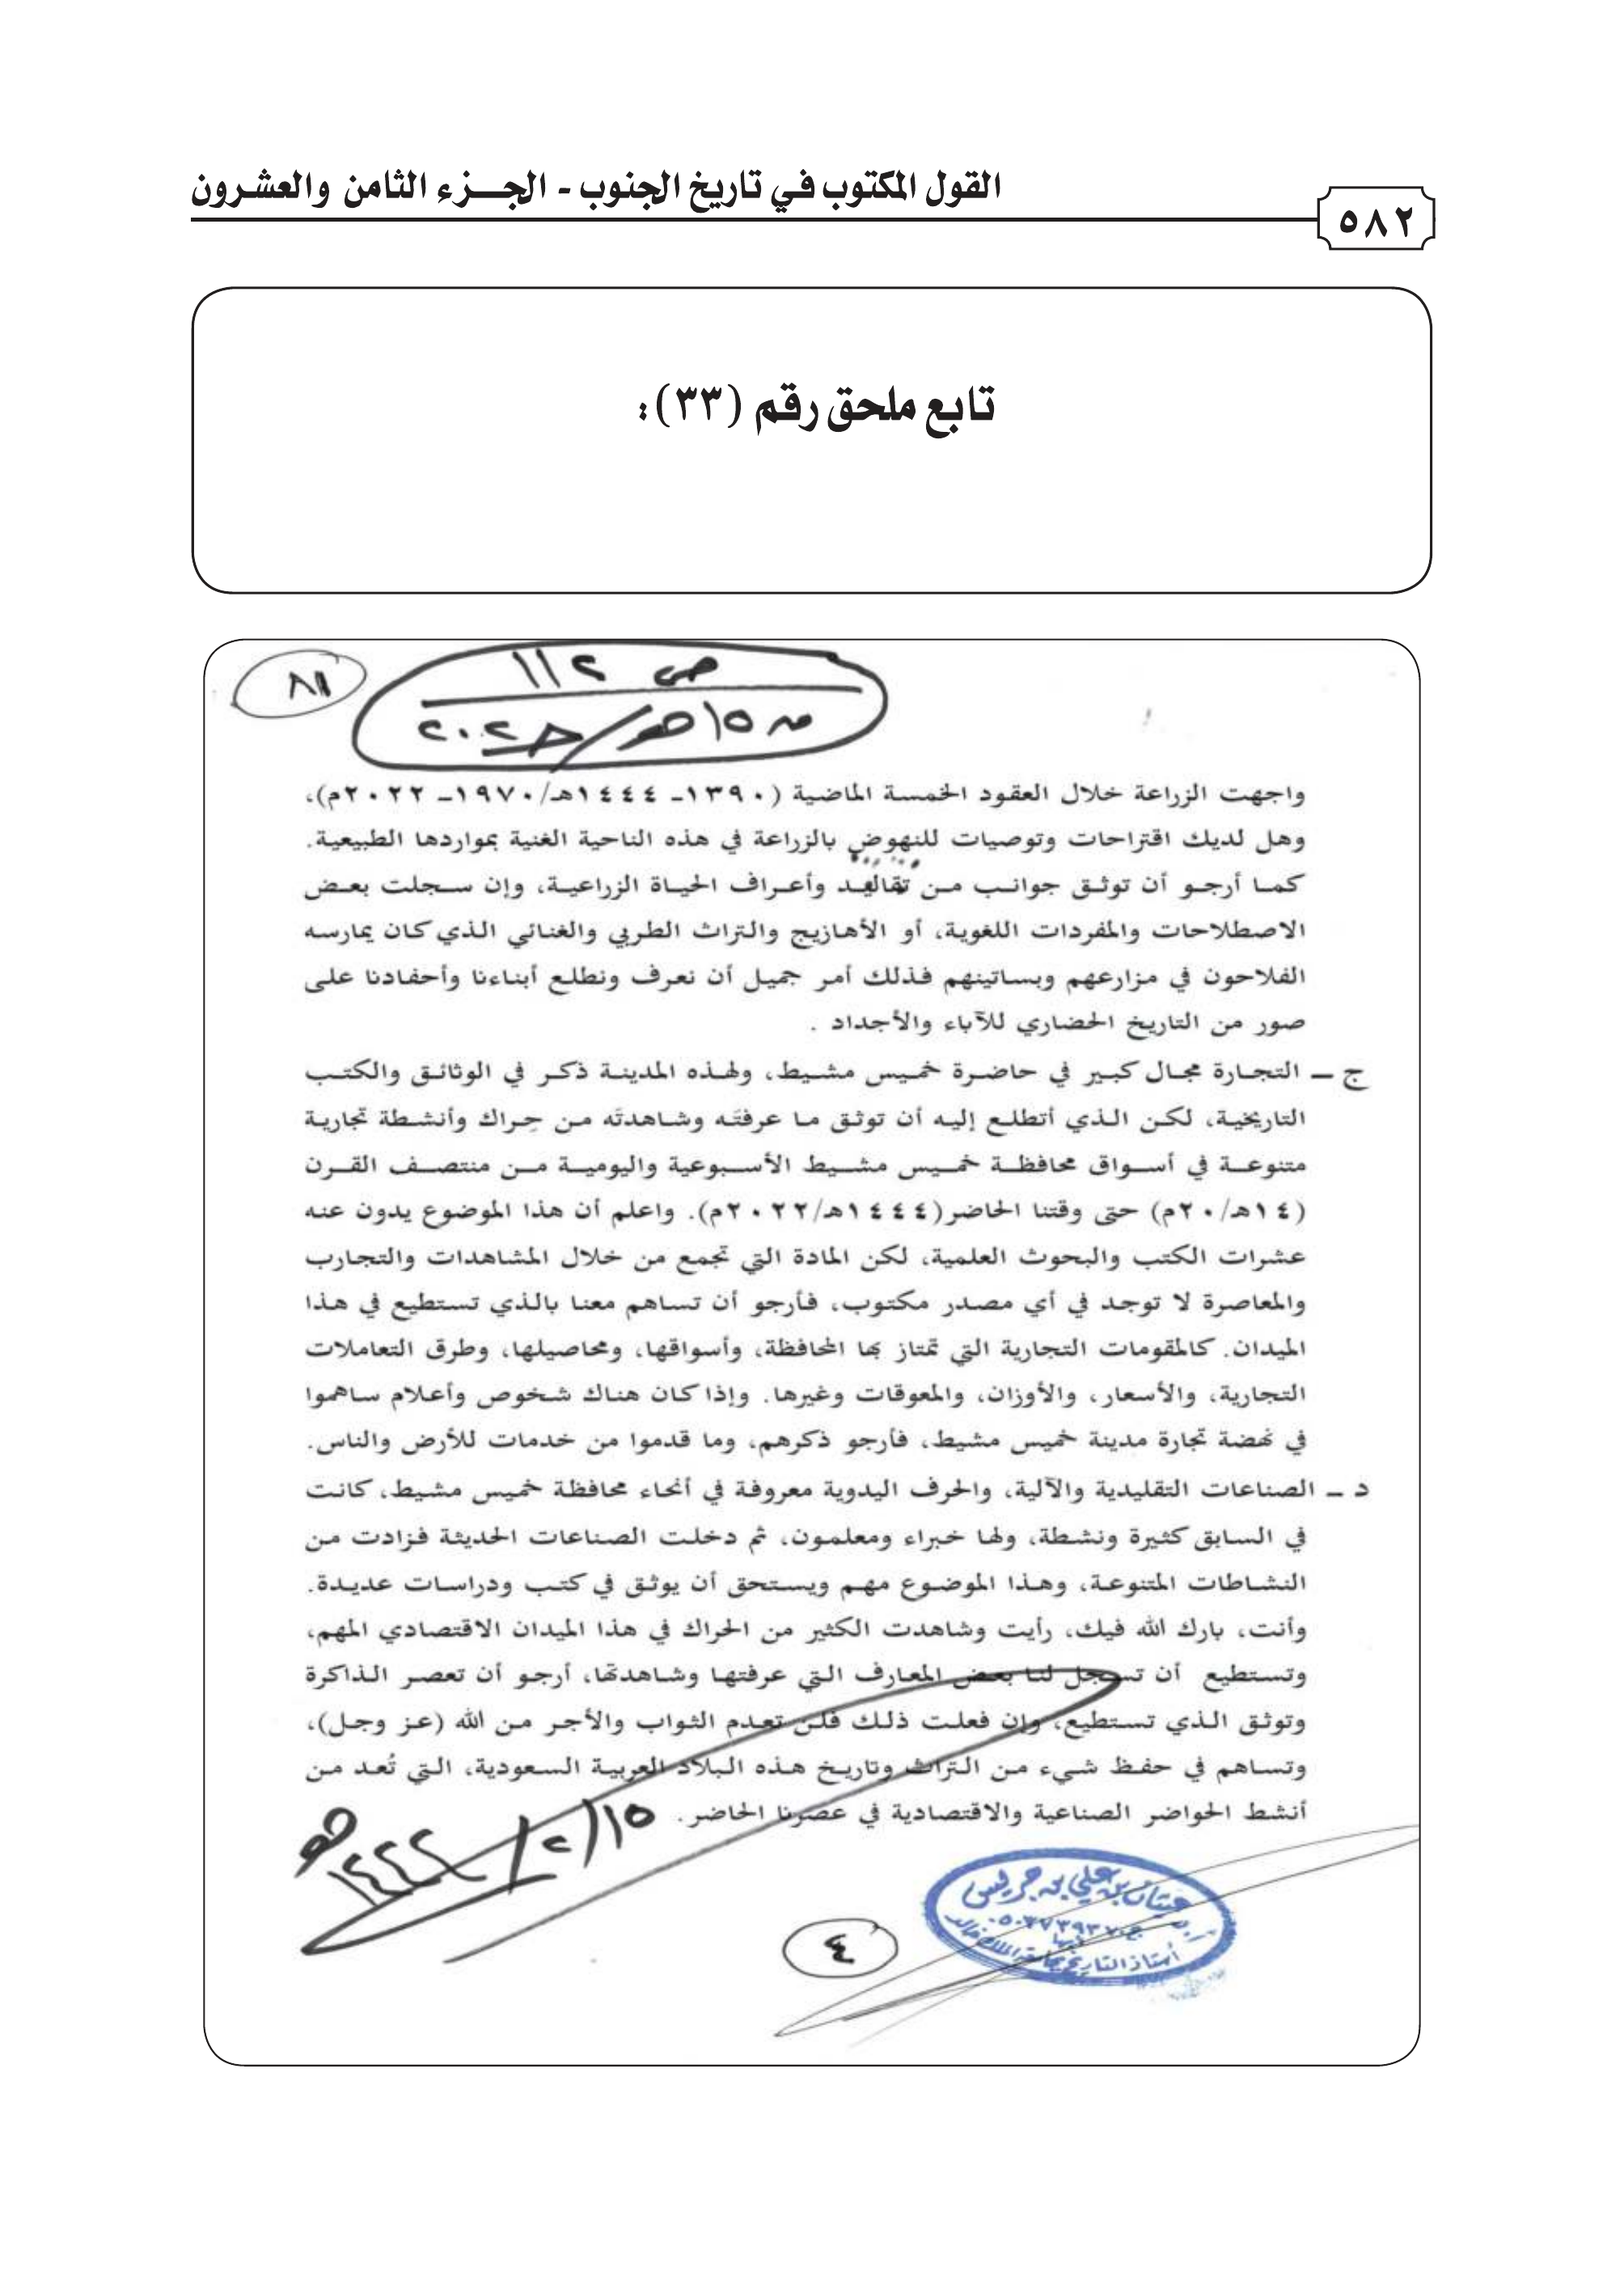 القول المكتوب في تاريخ الجنوب - الجزء الثامن والعشرون
٥٨٢
تابع ملحق رقم (٣٣):
ص ١١٢
٨١١
واجهت الزراعة خلال العقود الخمسة الماضية (١٣٩٠- ١٤٤٤هـ/١٩٧٠- ٢٠٢٢م)،
وهل لديك اقتراحات وتوصيات للنهوض بالزراعة في هذه الناحية الغنية بمواردها الطبيعية.
كما أرجو أن توثق جوانب من تقاليد وأعراف الحياة الزراعية، وإن سجلت بعض
الاصطلاحات والمفردات اللغوية، أو الأهازيج والتراث الطربي والغنائي الذي كان يمارسه
الفلاحون في مزارعهم وبساتينهم فذلك أمر جميل أن نعرف ونطلع أبناءنا وأحفادنا على
صور من التاريخ الحضاري للآباء والأجداد .
ج – التجارة مجال كبير في حاضرة خميس مشيط، ولهذه المدينة ذكر في الوثائق والكتب
التاريخية، لكن الذي أتطلع إليه أن توثق ما عرفتَه وشاهدتَه من حِراك وأنشطة تجارية
متنوعة في أسواق محافظة خميس مشيط الأسبوعية واليومية من منتصف القرن
(١٤هـ/٢٠م) حتى وقتنا الحاضر (١٤٤٤هـ/٢٠٢٢م). واعلم أن هذا الموضوع يدون عنه
عشرات الكتب والبحوث العلمية، لكن المادة التي تجمع من خلال المشاهدات والتجارب
والمعاصرة لا توجد في أي مصدر مكتوب، فأرجو أن تساهم معنا بالذي تستطيع في هذا
الميدان. كالمقومات التجارية التي تمتاز بها المحافظة، وأسواقها، ومحاصيلها، وطرق التعاملات
التجارية، والأسعار، والأوزان، والمعوقات وغيرها. وإذا كان هناك شخوص وأعلام ساهموا
في نهضة تجارة مدينة خميس مشيط، فأرجو ذكرهم، وما قدموا من خدمات للأرض والناس.
د – الصناعات التقليدية والآلية، والحرف اليدوية معروفة في أنحاء محافظة خميس مشيط، كانت
في السابق كثيرة ونشطة، ولها خبراء ومعلمون، ثم دخلت الصناعات الحديثة فزادت من
النشاطات المتنوعة، وهذا الموضوع مهم ويستحق أن يوثق في كتب ودراسات عديدة.
وأنت، بارك الله فيك، رأيت وشاهدت الكثير من الحراك في هذا الميدان الاقتصادي المهم،
وتستطيع أن تسجل لنا بعض المعارف التي عرفتها وشاهدتها، أرجو أن تعصر الذاكرة
وتوثق الذي تستطيع، وإن فعلت ذلك فلن تعدم الثواب والأجر من الله (عز وجل)،
وتساهم في حفظ شيء من التراث وتاريخ هذه البلاد العربية السعودية، التي تُعد من
أنشط الحواضر الصناعية والاقتصادية في عصرنا الحاضر.
غيثان بن علي بن جريس
أستاذ التاريخ بجامعة الملك خالد
٤